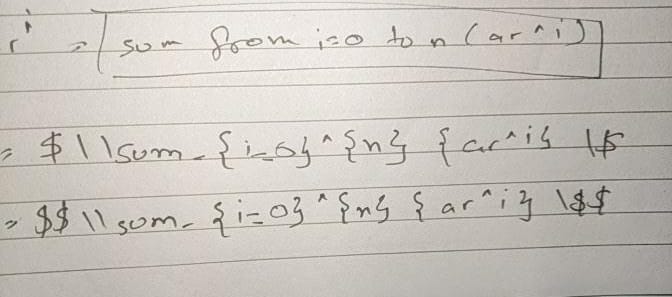 r^i = sum from i=0 to n (ar^i)
= $ \\sum_{i=0}^{n} {ar^i} \$
= $$ \\sum_{i=0}^{n} {ar^i} \$$